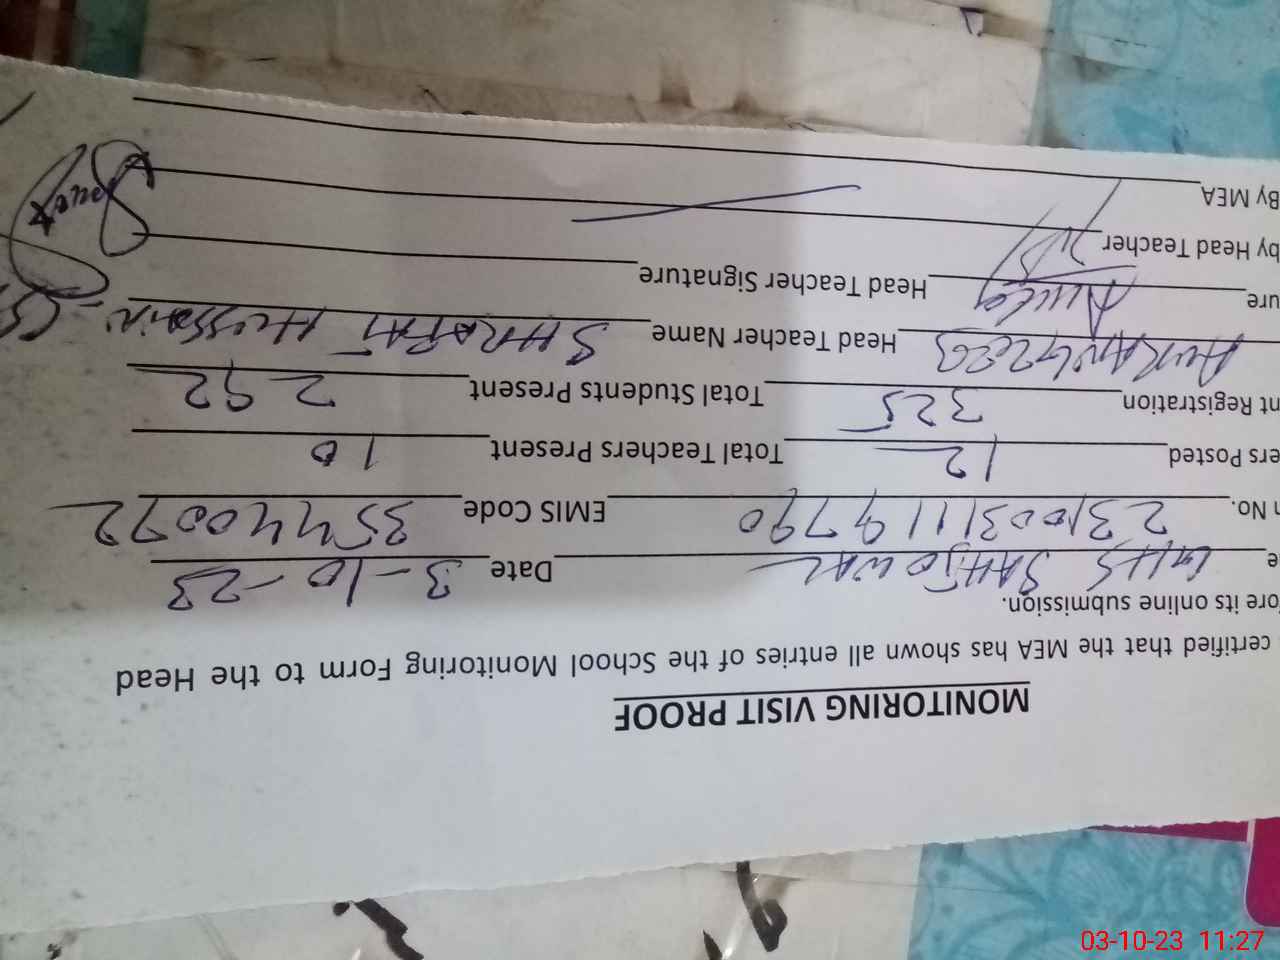 MONITORING VISIT PROOF
certified that the MEA has shown all entries of the School Monitoring Form to the Head
ore its online submission.
e GHS SAHJOWAL Date 3-10-23
n No. 2310031119790 EMIS Code 35440072
ers Posted 12 Total Teachers Present 10
nt Registration 325 Total Students Present 292
AURANGZEB Head Teacher Name SHARAFAT HUSSAIN
ure Head Teacher Signature
by Head Teacher
By MEA
03-10-23 11:27